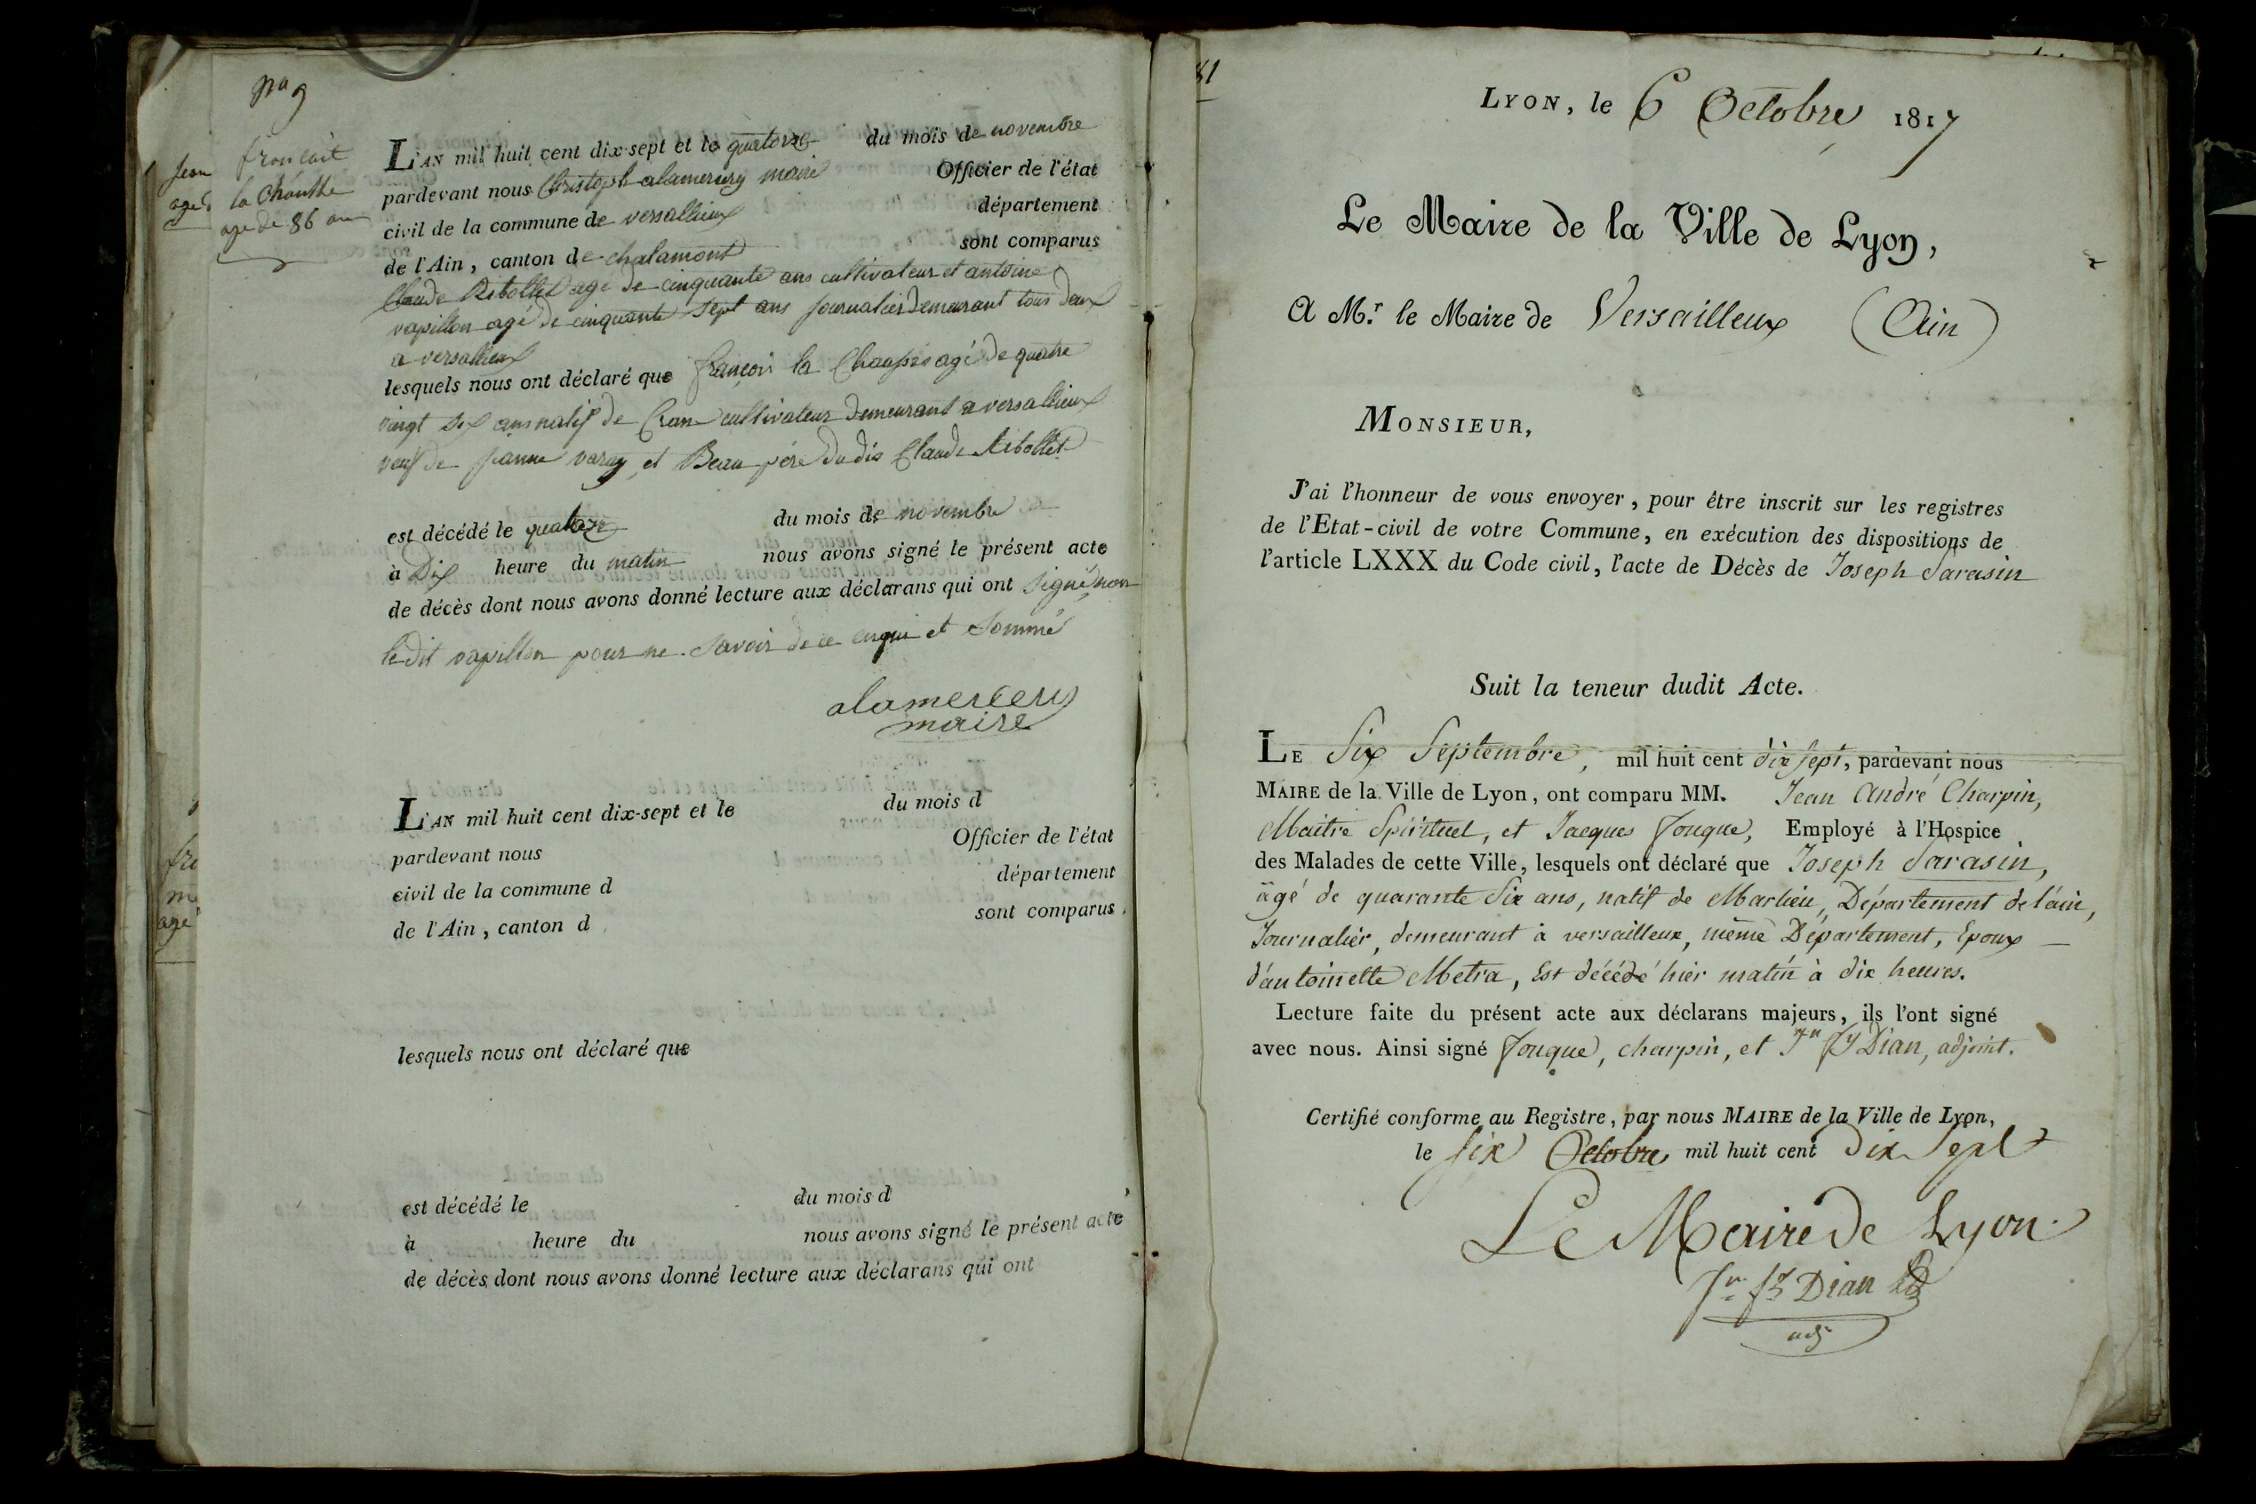 françois
la Chausse
age de 86 ans
Jean
agé
L'AN mil huit cent dix-sept et le quatorze du mois de novembre
pardevant nous Christoph alamercery maire Officier de l'état
civil de la commune de versallieux département
de l'Ain, canton de chalamont sont comparus
Claude Ribollet agé de cinquante ans cultivateur et antoine
vapillon agé de cinquante sept ans journalier Demeurant tous deux
a versallieux
lesquels nous ont déclaré que françois la Chausse agé de quatre
vingt six ans natif de Cran cultivateur Demeurant a versallieux
veuf de jeanne varey et Beau père du dis Claude Ribollet
est décédé le quatorze du mois de novembre
à Dix heure du matin nous avons signé le présent acte
de décès dont nous avons donné lecture aux déclarans qui ont signé non
le dit vapillon pour ne savoir de ce enquis et sommé
alamercery
maire
L'AN mil huit cent dix-sept et le du mois d
pardevant nous Officier de l'état
civil de la commune d département
de l'Ain, canton d sont comparus
lesquels nous ont déclaré que
est décédé le du mois d
à heure du nous avons signé le présent acte
de décès dont nous avons donné lecture aux déclarans qui ont
agé
81
LYON, le 6 Octobre 1817
Le Maire de la Ville de Lyon,
A Mr. le Maire de Versailleux (Ain)
MONSIEUR,
J'ai l'honneur de vous envoyer, pour être inscrit sur les registres
de l'Etat-civil de votre Commune, en exécution des dispositions de
l'article LXXX du Code civil, l'acte de Décès de Joseph Sarasin
Suit la teneur dudit Acte.
LE Six Septembre, mil huit cent dix sept, pardevant nous
MAIRE de la Ville de Lyon, ont comparu MM. Jean André Charpin,
Maitre Spirituel, et Jacques Fouque, Employé à l'Hospice
des Malades de cette Ville, lesquels ont déclaré que Joseph Sarasin,
âgé de quarante Six ans, natif de Marlieu, Département de l'ain,
Journalier, demeurant à versailleux, même Département, Epoux
d'antoinette Metra, Est décédé hier matin à dix heures.
Lecture faite du présent acte aux déclarans majeurs, ils l'ont signé
avec nous. Ainsi signé Fouque, charpin, et Jn fs Dian, adjoint.
Certifié conforme au Registre, par nous MAIRE de la Ville de Lyon,
le six Octobre mil huit cent dix Sept
Le Maire de Lyon
Jn fs Dian
adj